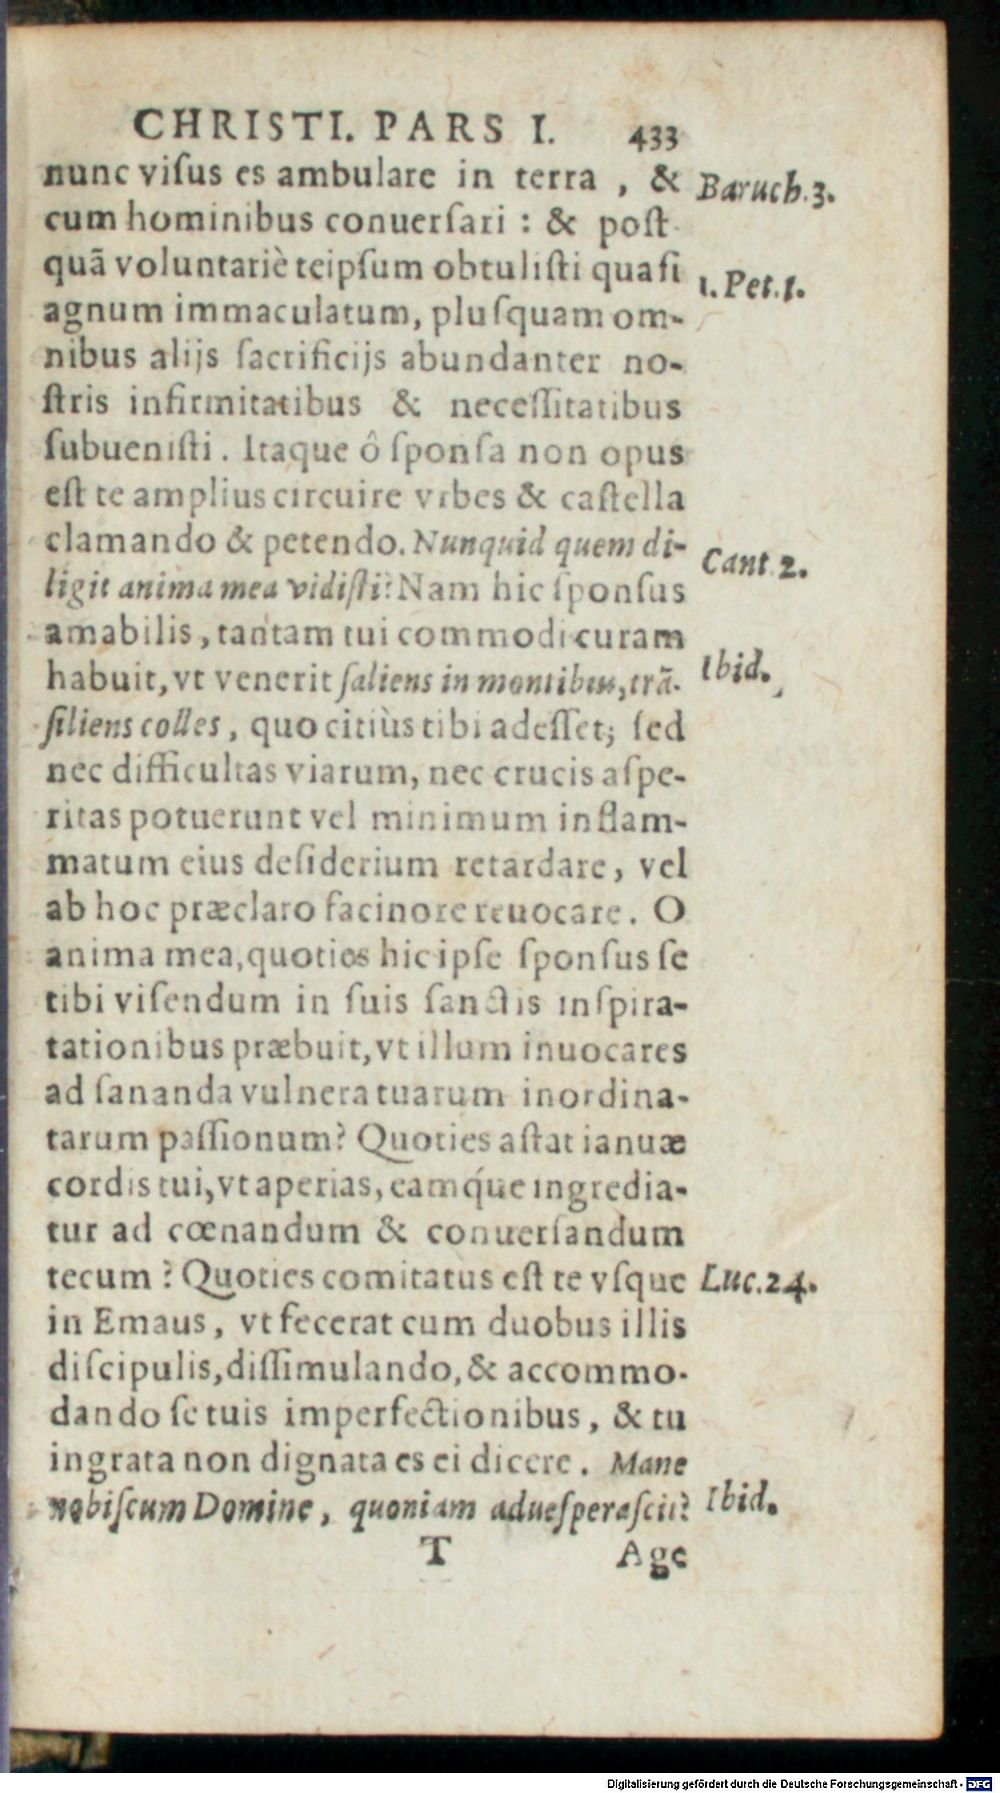 CHRISTI. PARS I. 433
nunc viſus es ambulare in terra , & Baruch. 3.
cum hominibus conuerſari : & poſt
quā voluntariè teipſum obtuliſti quaſi 1. Pet. 1.
agnum immaculatum, pluſquam om-
nibus alijs ſacrificijs abundanter no-
ſtris infirmitatibus & neceſſitatibus
ſubueniſti. Itaque ô ſponſa non opus
eſt te amplius circuire vrbes & caſtella
clamando & petendo. Nunquid quem di- Cant. 2.
ligit anima mea vidiſti? Nam hic ſponſus
amabilis, tantam tui commodi curam
habuit, vt venerit ſaliens in montibus, trā- Ibid.
ſiliens colles, quo citiùs tibi adeſſet; ſed
nec difficultas viarum, nec crucis aſpe-
ritas potuerunt vel minimum inflam-
matum eius deſiderium retardare, vel
ab hoc præclaro facinore reuocare. O
anima mea, quoties hic ipſe ſponſus ſe
tibi viſendum in ſuis ſanctis inſpira-
tationibus præbuit, vt illum inuocares
ad ſananda vulnera tuarum inordina-
tarum paſſionum? Quoties aſtat ianuæ
cordis tui, vt aperias, eamq́ue ingredia-
tur ad cœnandum & conuerſandum
tecum? Quoties comitatus eſt te vſque Luc. 24.
in Emaus, vt fecerat cum duobus illis
diſcipulis, diſſimulando, & accommo-
dando ſe tuis imperfectionibus, & tu
ingrata non dignata es ei dicere. Mane
nobiſcum Domine, quoniam adueſperaſcit? Ibid.
T Age
Digitalisierung gefördert durch die Deutsche Forschungsgemeinschaft - DFG